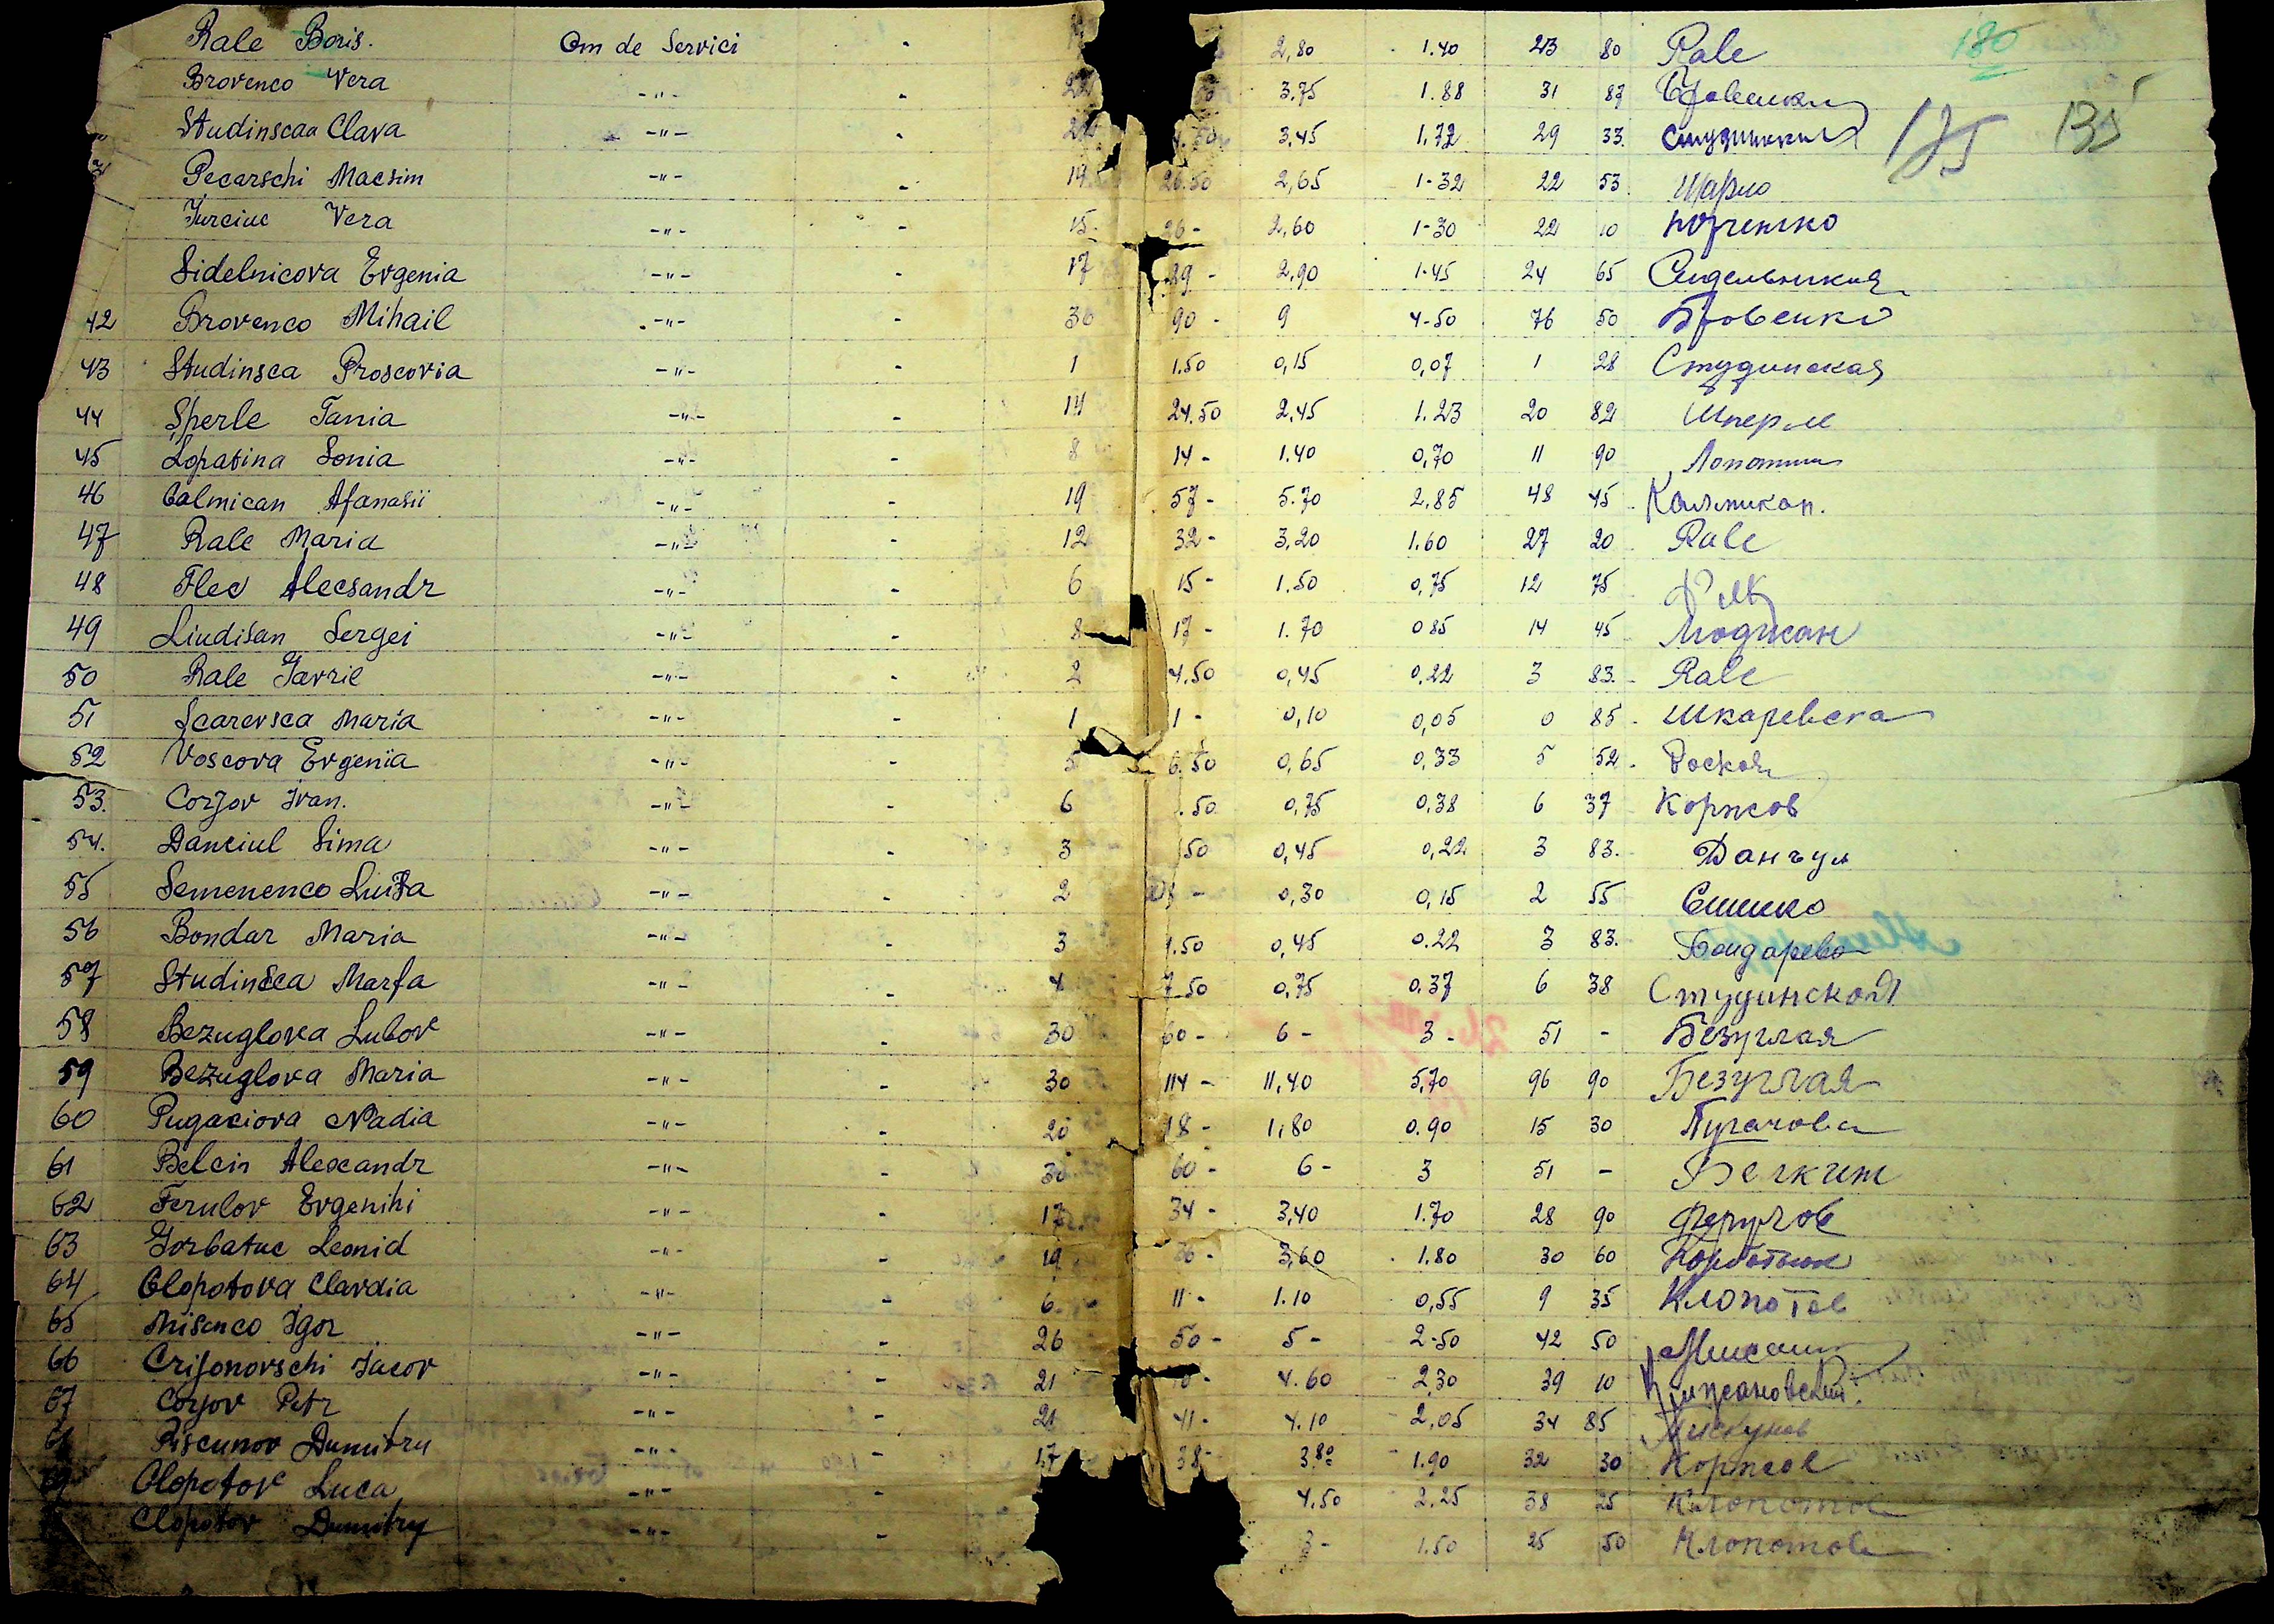 Rale Boris. Om de Servici - 2,80 1.40 23 80 Rale 180
Brovenco Vera -"- - 3,75 1.88 31 87
Studinscaa Clava -"- - 3,45 1,72 29 33. 175 135
Pecarschi Macsim -"- - 26.50 2,65 1-32 22 53.
Iurciuc Vera -"- - 15 26- 2,60 1-30 22 10
Sidelnicova Evgenia -"- - 17 29- 2,90 1-45 24 65 Сидельникия
42 Brovenco Mihail -"- - 36 90- 9 4-50 76 50 Бровенко
43 Studinsca Proscovia -"- - 1 1.50 0,15 0,07 1 28 Студинская
44 Sperle Tania -"- - 14 24.50 2,45 1.23 20 82 Шперле
45 Lopatina Sonia -"- - 8 14- 1.40 0,70 11 90 Лопатин
46 Calmican Afanasii -"- - 19 57- 5.70 2,85 48 45 Калмикан.
47 Rale Maria -"- - 12 32- 3,20 1.60 27 20 Rale
48 Flec Alecsandr -"- - 6 15- 1.50 0,75 12 75
49 Liudisan Sergei -"- - 8 17- 1.70 0 85 14 45 Людисан
50 Rale Gavril -"- - 2 4.50 0,45 0,22 3 83. Rale
51 Scarevsca Maria -"- - 1 1- 0,10 0,05 0 85. Шкаревска
52 Voscova Evgenïa -"- - 5 6.50 0,65 0,33 5 52.
53. Corjov Ivan. -"- - 6 .50 0,75 0,38 6 37 Коржов
54. Danciul Sima -"- - 3 50 0,45 0,22 3 83. Данчул
55 Semenenco Luiza -"- - 2 - 0,30 0,15 2 55
56 Bondar Maria -"- - 3 4.50 0,45 0.22 3 83. Бондарева
57 Studinsca Marfa -"- - 4 7.50 0,75 0,37 6 38 Студинская
58 Bezuglova Lubov -"- - 30 60- 6- 3- 51 - Безуглая
59 Bezuglova Maria -"- - 30 114- 11,40 5,70 96 90 Безуглая
60 Pugaciova Nadia -"- - 20 18- 1,80 0.90 15 30 Пугачова
61 Belcin Alexandr -"- - 30 60- 6- 3 51 - Белкин
62 Ferulov Evgenihi -"- - 17 34- 3,40 1.70 28 90 Ферулов
63 Gorbatuc Leonid -"- - 19 36- 3,60 1.80 30 60 Горботюк
64 Clopotova Clavdia -"- - 6 11- 1.10 0,55 9 35 Клопотов
65 Misenco Igor -"- - 26 50- 5- 2-50 42 50
66 Crijonovschi Iacov -"- - 21 4.60 2,30 39 10 Крижановский.
67 Corjov Petr -"- - 21 41- 4.10 2,05 34 85 Пискунов
Piscunov Dumitru -"- - 17 38- 3,80 1.90 32 30 Коржов
69 Clopotov Luca -"- - 4,50 2.25 38 25 Клопотов
Clopotov Dumitry -"- - 3- 1.50 25 50 Клопотов